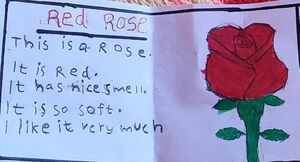 Red Rose
This is a Rose.
It is Red.
It has nice smell.
It is so soft.
I like it very much